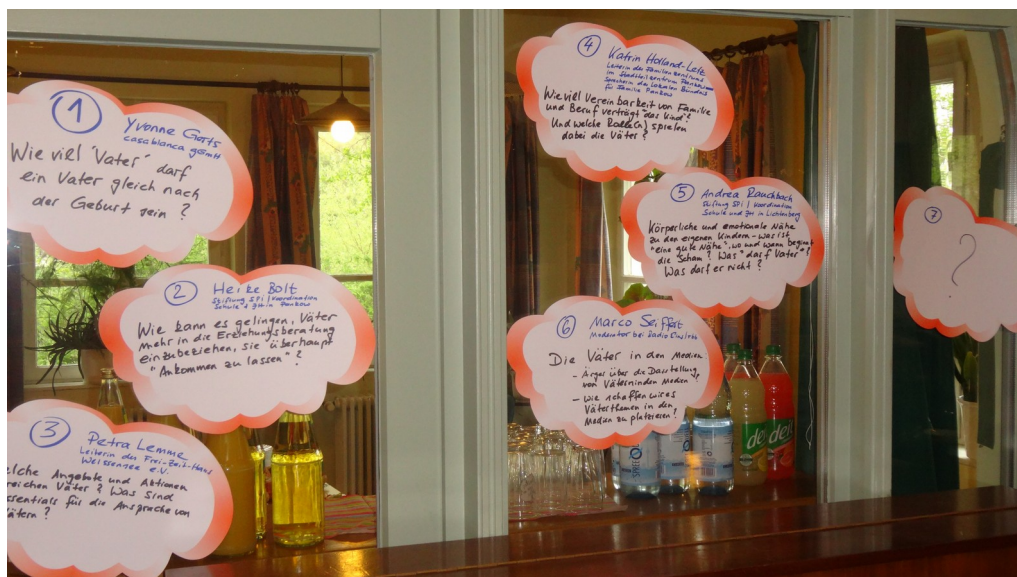 1
Yvonne Gerts
casablanca gGmbH
Wie viel 'Vater' darf
ein Vater gleich nach
der Geburt sein ?
2
Heike Bolt
Stiftung SPI / Koordination
Schule +
in Pankow
Wie kann es gelingen, Väter
mehr in die Erziehungsberatung
einzubeziehen, sie überhaupt
"Ankommen zu lassen" ?
3
Petra Lemme
Leiterin des Frei-Zeit-Haus
Weissensee e.V.
elche Angebote und Aktionen
reichen Väter ? Was sind
ssentials für die Ansprache von
ätern ?
4
Katrin Holland-Letz
Leiterin des Familienzentrums
im Stadtteilzentrum Pankow
Sprecherin des Lokalen Bündnis
für Familie Pankow
Wie viel Vereinbarkeit von Familie
und Beruf verträgt "das Kind"?
Und welche Rolle(n) spielen
dabei die Väter ?
5
Andrea Rauchbach
Stiftung SPI / Koordination
Schule und JH in Lichtenberg
Körperliche und emotionale Nähe
zu den eigenen Kindern - was ist
"eine gute Nähe", wo und wann beginnt
die Scham? Was "darf Vater"?
Was darf er nicht ?
6
Marco Seiffert
Moderator bei Radio Eins/rbb
Die Väter in den Medien
- Ärger über die Darstellung
von Vätern in den Medien?
- wie schaffen wir es
Väterthemen in den
Medien zu platzieren?
7
?
SPREE
de
deit